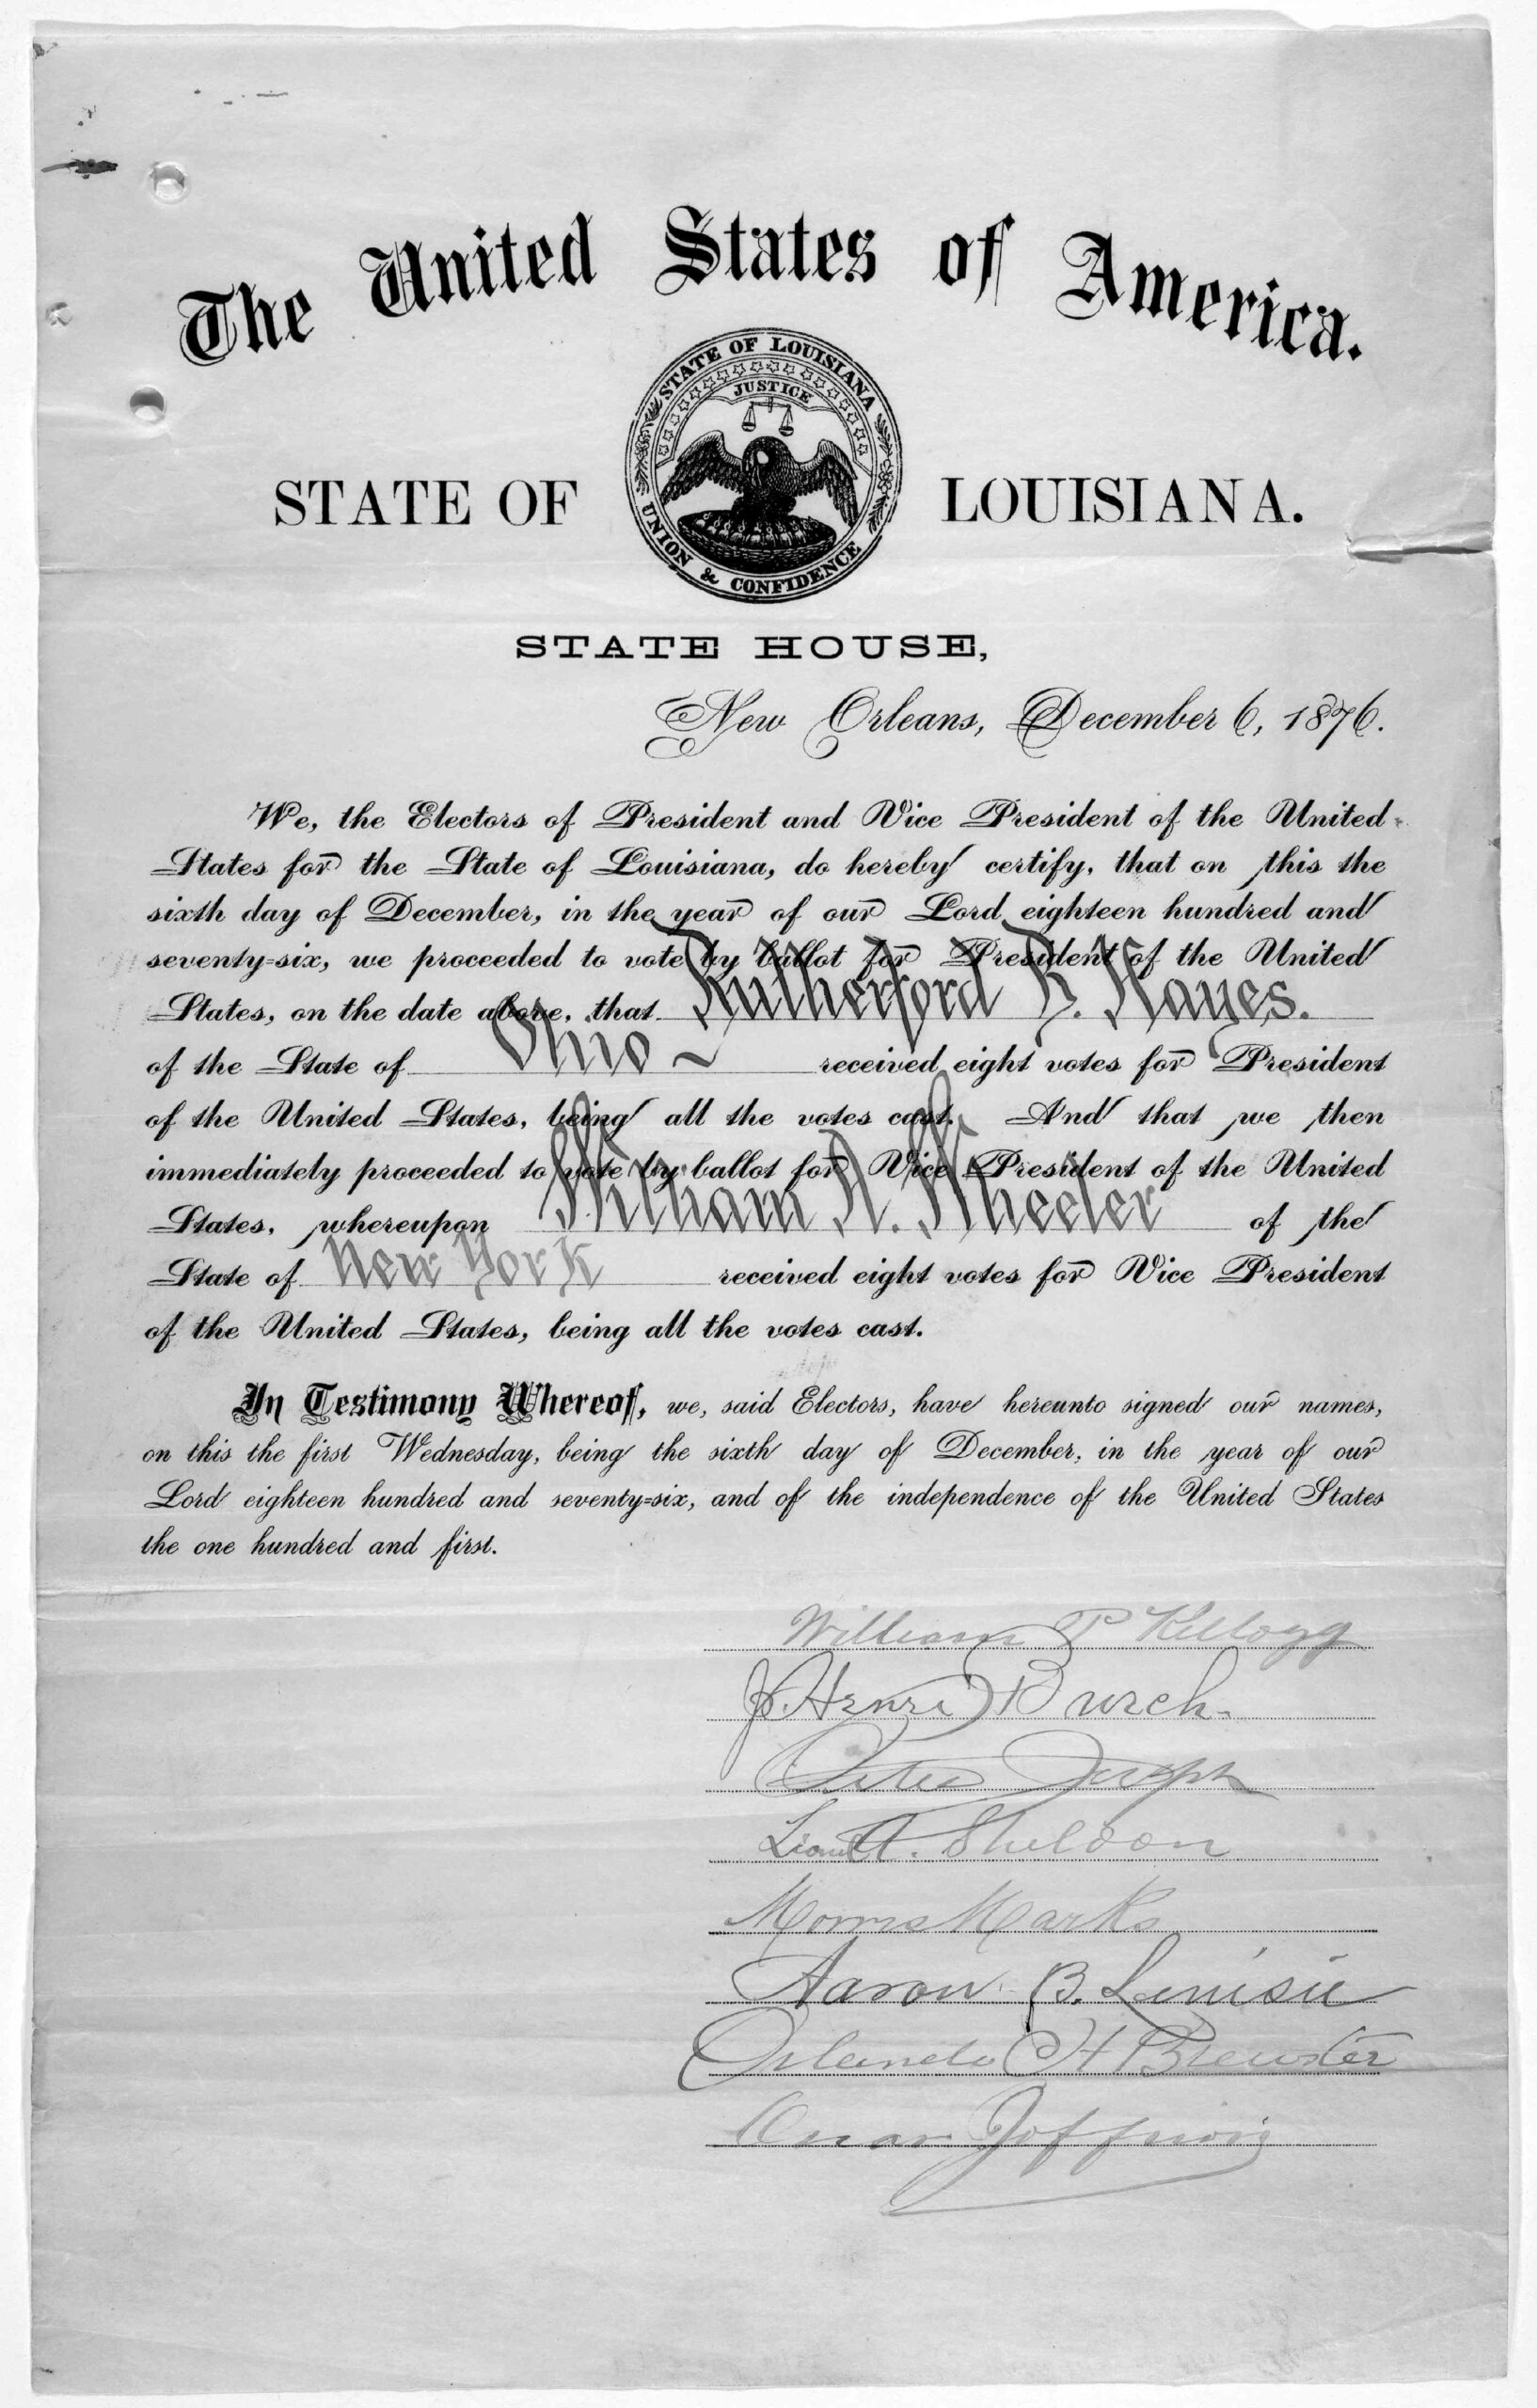 The United States of America.
STATE OF LOUISIANA
JUSTICE
UNION & CONFIDENCE
STATE OF LOUISIANA.
STATE HOUSE,
New Orleans, December 6, 1876.
We, the Electors of President and Vice President of the United
States for the State of Louisiana, do hereby certify, that on this the
sixth day of December, in the year of our Lord eighteen hundred and
seventy-six, we proceeded to vote by ballot for President of the United
States, on the date above, that Rutherford B. Hayes.
of the State of Ohio ~ received eight votes for President
of the United States, being all the votes cast. And that we then
immediately proceeded to vote by ballot for Vice President of the United
States, whereupon William A. Wheeler of the
State of New York received eight votes for Vice President
of the United States, being all the votes cast.
In Testimony Whereof, we, said Electors, have hereunto signed our names,
on this the first Wednesday, being the sixth day of December, in the year of our
Lord eighteen hundred and seventy-six, and of the independence of the United States
the one hundred and first.
William P Kellogg
J. Henri Burch.
Peter Joseph
Lionel A. Sheldon
Morris Marks
Aaron B. Levisée
Orlando H Brewster
Oscar Joffrion